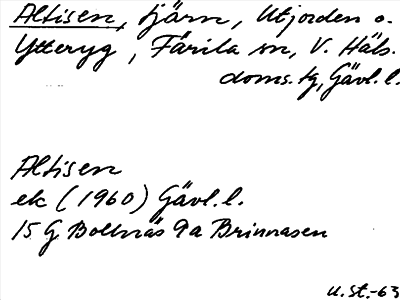 Altisen, tjärn, Utjorden o.
Ytteryg, Färila sn, V. Häls.
doms. tg, Gävl. l.
Altisen
ek (1960) Gävl. l.
15 G Bollnäs 9a Brinnasen
U. St. -63